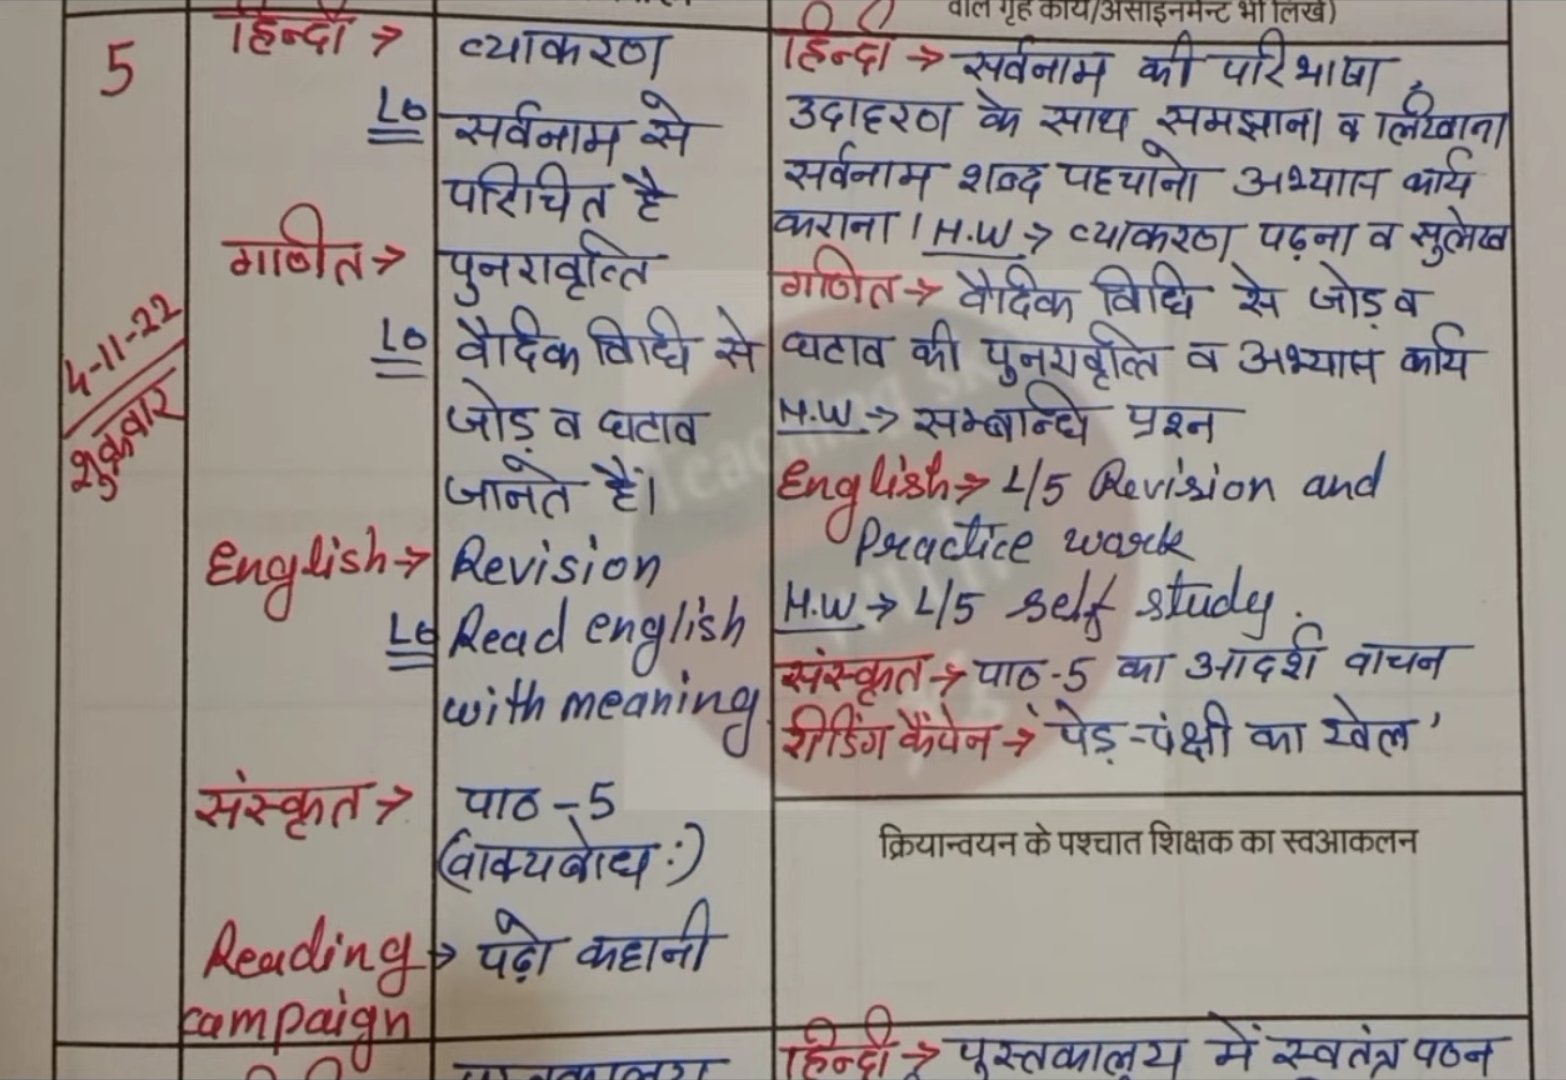 वाले गृह कार्य/असाइनमेन्ट भी लिखें)
5
4-11-22
शुक्रवार
हिन्दी →
व्याकरण
LO सर्वनाम से
परिचित है
गणित →
पुनरावृत्ति
LO वैदिक विधि से
जोड़ व घटाव
जानते हैं।
English →
Revision
LO Read english
with meaning
संस्कृत →
पाठ - 5
(वाक्यबोध :)
Reading → पढ़ो कहानी
campaign
हिन्दी → सर्वनाम की परिभाषा,
उदाहरण के साथ समझाना व लिखाना
सर्वनाम शब्द पहचानो अभ्यास कार्य
कराना। H.W → व्याकरण पढ़ना व सुलेख
गणित → वैदिक विधि से जोड़ व
घटाव की पुनरावृत्ति व अभ्यास कार्य
H.W → सम्बन्धि प्रश्न
English → L/5 Revision and
Practice work
H.W → L/5 self study.
संस्कृत → पाठ - 5 का आदर्श वाचन
रीडिंग कैंपेन → 'पेड़ - पंक्षी का खेल'
क्रियान्वयन के पश्चात शिक्षक का स्वआकलन
हिन्दी → पुस्तकालय में स्वतंत्र पठन